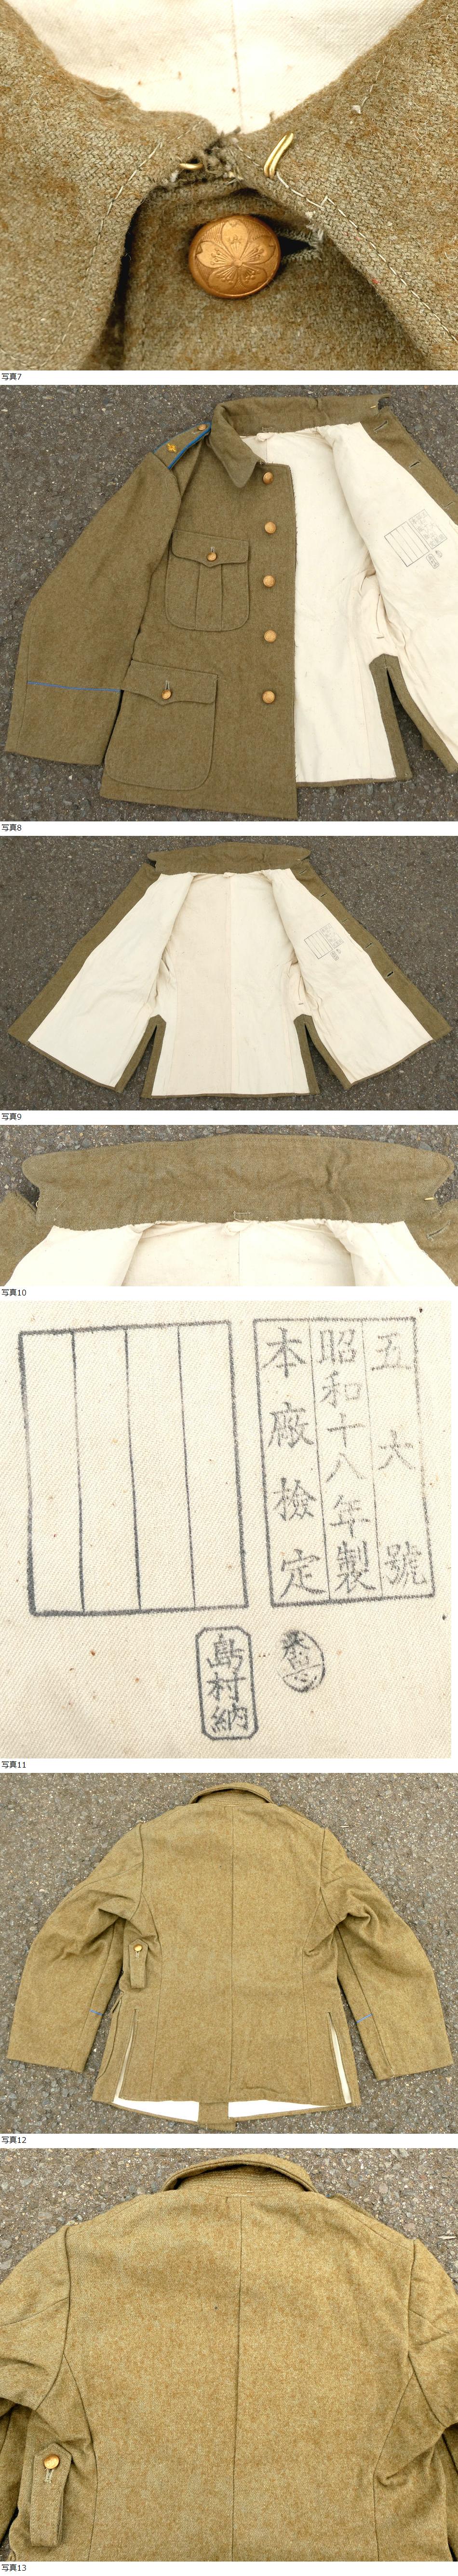 写真7
写真8
写真9
写真10
五大號
昭和十八年製
本廠檢定
島村納
写真11
写真12
写真13